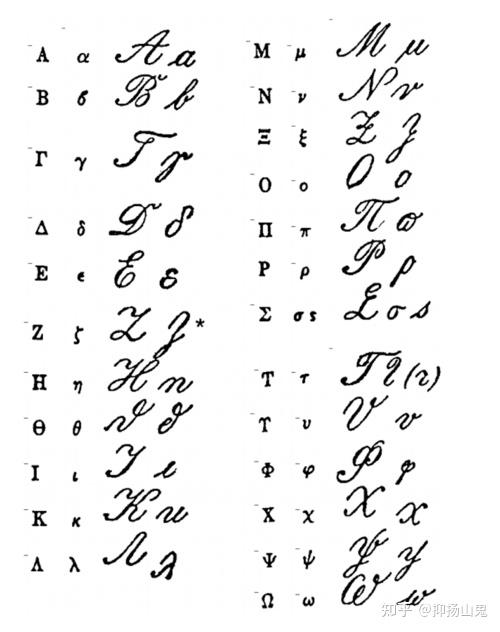 Α α A a
Β ϐ B b
Γ γ Γ γ
Δ δ D δ
Ε ϵ E ε
Ζ ζ Z ʒ*
Η η H n
Θ θ ϑ ϑ
Ι ι I ι
Κ κ K u
Λ λ Λ λ
Μ μ M μ
Ν ν N ν
Ξ ξ Ξ ξ
Ο ο O o
Π π Π ϖ
Ρ ρ P ρ
Σ σ ς Σ σ s
Τ τ T τ (τ)
Υ υ V v
Φ φ Φ φ
Χ χ X x
Ψ ψ Ψ y
Ω ω W w
知乎 @抑扬山鬼